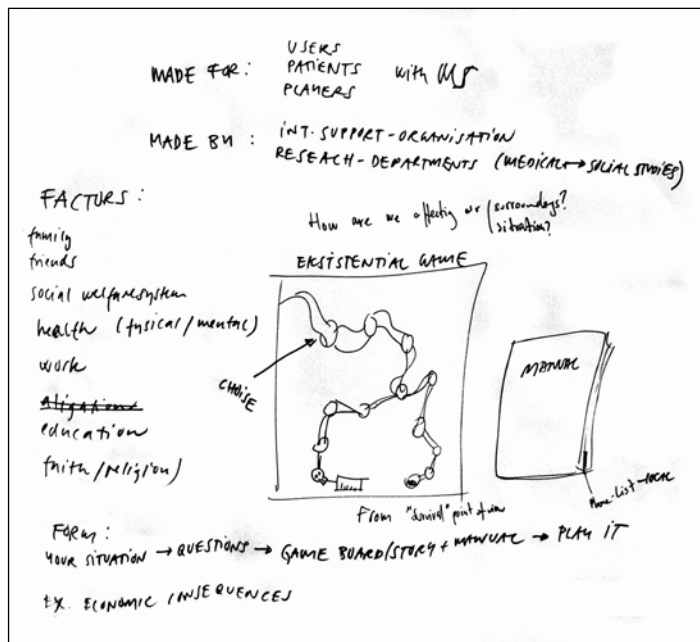 MADE FOR: USERS
PATIENTS with MS
PLAYERS
MADE BY: INT. SUPPORT-ORGANISATION
RESEACH-DEPARTMENTS (MEDICAL↔SOCIAL STUDIES)
FACTORS:
family
friends
social welfaresystem
health (fysical/mental)
work
education
faith/religion)
How are we affecting our / surroundings?
situation?
EKSISTENTIAL GAME
CHOISE
From "survival" point of view
MANUAL
Phone-List-LOCAL
FORM:
YOUR SITUATION → QUESTIONS → GAME BOARD/STORY + MANUAL → PLAY IT
EX. ECONOMIC CONSEQUENCES